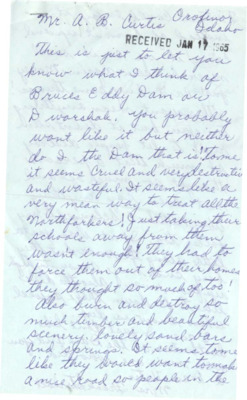 Mr. A. B. Curtis Orofino,
Idaho
RECEIVED JAN 17 1965
This is just to let you
know what I think of
Bruces Eddy Dam on
Dworshak. you probably
wont like it but neither
do I the Dam that is! To me
it seems cruel and very destructive
and wasteful. It seems like a
very mean way to treat all the
Northforkers! Just taking their
schools away from them
wasn't enough! they had to
force them out of their homes
they thought so much of too!
Also burn and destroy so
much timber and beautiful
scenery, lovely sand bars
and springs. It seems to me
like they would want to make
a nice road so people in the